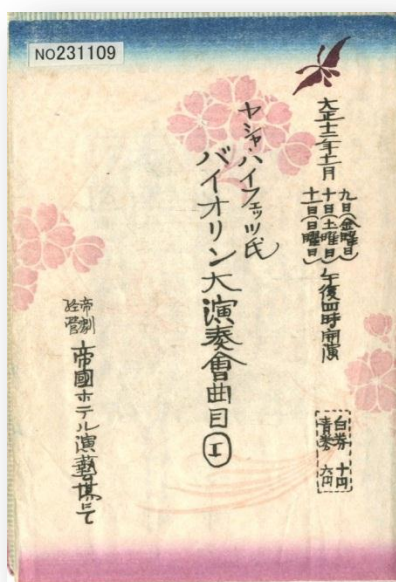 NO231109
大正十二年十一月
九日(金曜日)
十日(土曜日)
十一日(日曜日)
午後四時開演
ヤシャ・ハイフェッツ氏
バイオリン大演奏會曲目
I
白券 十円
青券 六円
帝劇
経営
帝國ホテル演藝場にて